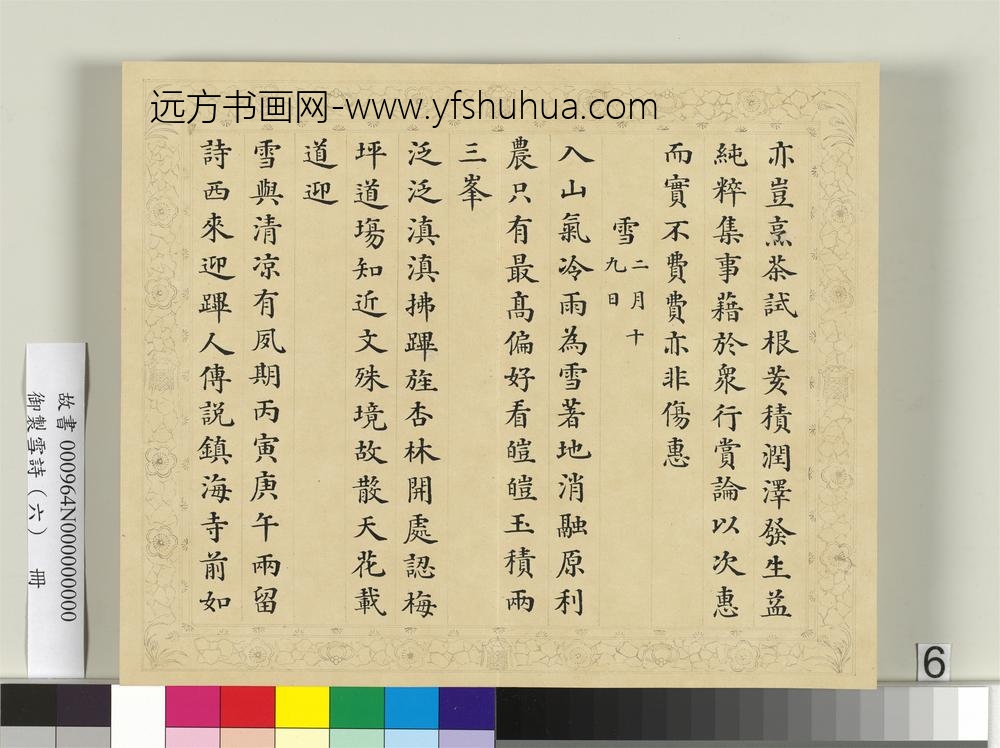 远方书画网-www.yfshuhua.com
亦豈烹茶試根荄積潤澤發生益
純粹集事藉於衆行賞論以次惠
而實不費費亦非傷惠
雪二月十九日
入山氣冷雨為雪著地消融原利
農只有最髙偏好看皚皚玉積兩
三峯
泛泛滇滇拂蹕旌杏林開處認梅
坪道場知近文殊境故散天花載
道迎
雪與清凉有夙期丙寅庚午兩留
詩西來迎蹕人傳説鎮海寺前如
故書 000964N000000000
御製雪詩（六） 冊
6